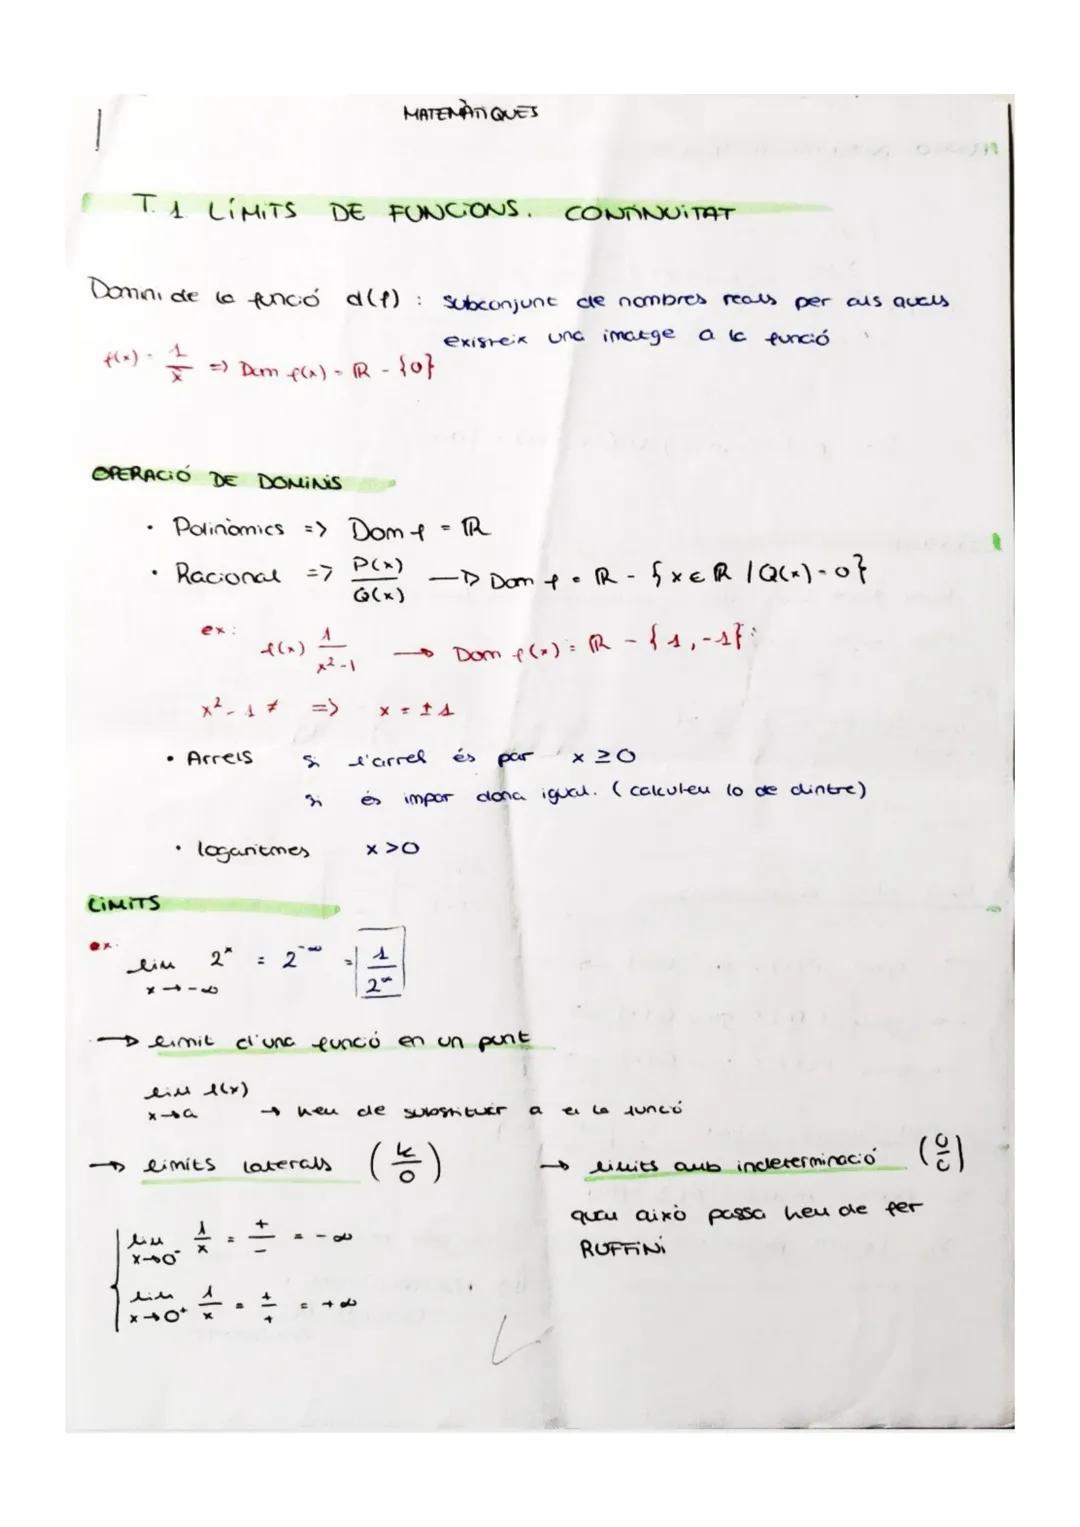 MATEMÀTIQUES
T. 1 LÍMITS DE FUNCIONS. CONTINUITAT
Domini de la funció d(f) : subconjunt de nombres reals per als quals
existeix una imatge a la funció
f(x) = 1/x => Dom f(x) = ℝ - {0}
OPERACIÓ DE DOMINIS
• Polinòmics => Dom f = ℝ
• Racional => P(x)/Q(x) → Dom f = ℝ - {x ∈ ℝ / Q(x) = 0}
ex:
f(x) 1/x²-1 → Dom f(x) = ℝ - {1, -1}
x² - 1 ≠ => x = ± 1
• Arrels si l'arrel és par x ≥ 0
si és impar dona igual. (calculeu lo de dintre)
• logaritmes x > 0
LÍMITS
ex.
lim x→-∞ 2ˣ = 2^-∞ = 1/2^∞
→ límit d'una funció en un punt
lim f(x)
x→a → heu de substituir a en la funció
→ límits laterals (k/0)
lim x→0⁻ 1/x = +/- = -∞
lim x→0⁺ 1/x = +/+ = +∞
→ límits amb indeterminació (0/0)
quan això passa heu de fer
RUFFINI